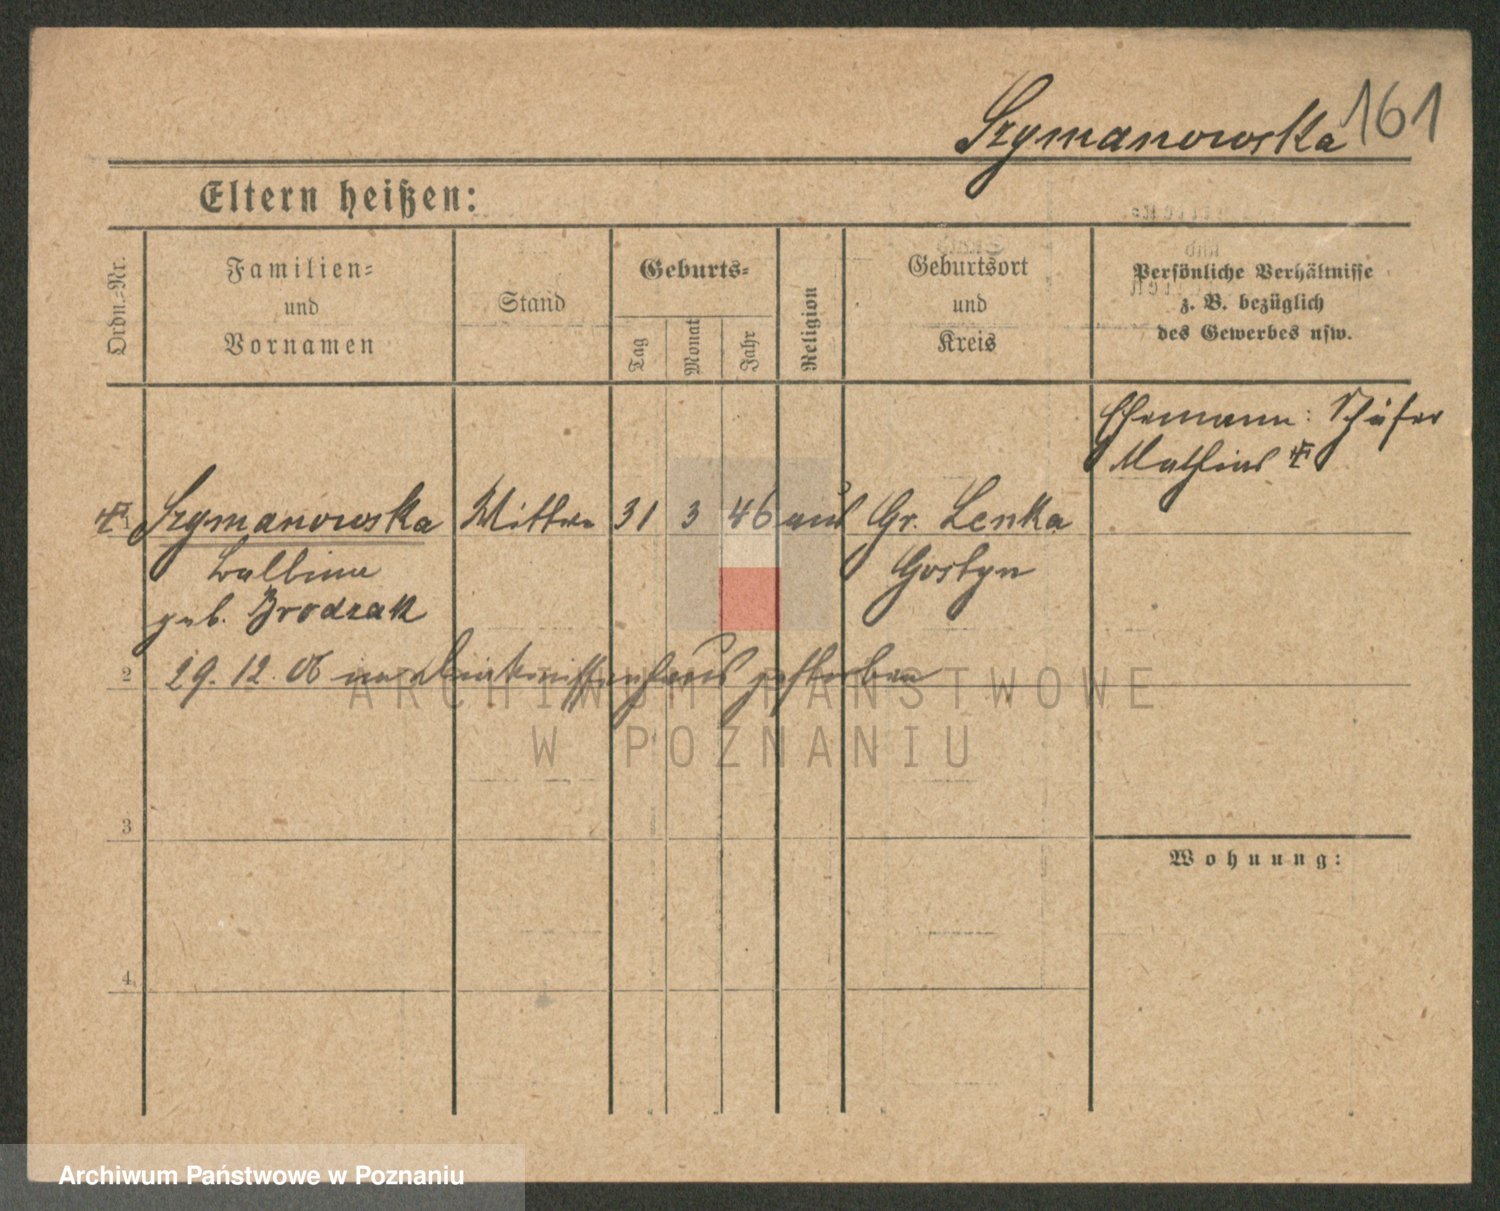 Szymanowska 161
Eltern heißen:
Ordn.-Nr.
Familien-
und
Vornamen
Stand
Geburts-
Tag
Monat
Jahr
Religion
Geburtsort
und
Kreis
Persönliche Verhältnisse
z. B. bezüglich
des Gewerbes usw.
Ehemann: Schäfer
Mathias
Szymanowska Witwe 31 3 46 Gr. Lenka
Balbina Gostyn
geb. Brodzak
2 29. 12. 06 im Diakonissenhaus gestorben
3
Wohnung:
4
ARCHIWUM PAŃSTWOWE
W POZNANIU
Archiwum Państwowe w Poznaniu